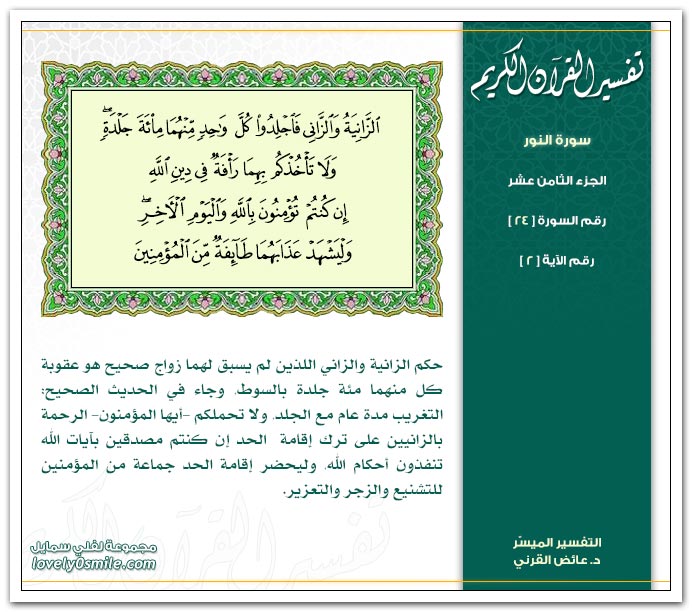 تفسير القرآن الكريم
سورة النور
الجزء الثامن عشر
رقم السورة [ ٢٤ ]
رقم الآية [ ٢ ]
ٱلزَّانِيَةُ وَٱلزَّانِى فَٱجْلِدُوا۟ كُلَّ وَٰحِدٍ مِّنْهُمَا مِا۟ئَةَ جَلْدَةٍۖ
وَلَا تَأْخُذْكُم بِهِمَا رَأْفَةٌ فِى دِينِ ٱللَّهِ
إِن كُنتُمْ تُؤْمِنُونَ بِٱللَّهِ وَٱلْيَوْمِ ٱلْءَاخِرِۖ
وَلْيَشْهَدْ عَذَابَهُمَا طَآئِفَةٌ مِّنَ ٱلْمُؤْمِنِينَ
حكم الزانية والزاني اللذين لم يسبق لهما زواج صحيح هو عقوبة
كل منهما مئة جلدة بالسوط، وجاء في الحديث الصحيح؛
التغريب مدة عام مع الجلد، ولا تحملكم -أيها المؤمنون- الرحمة
بالزانيين على ترك إقامة الحد إن كنتم مصدقين بآيات الله
تنفذون أحكام الله، وليحضر إقامة الحد جماعة من المؤمنين
للتشنيع والزجر والتعزير.
التفسير الميسّر
د. عائض القرني
مجموعة لفلي سمايل
lovely0smile.com
تفسير القرآن الكريم